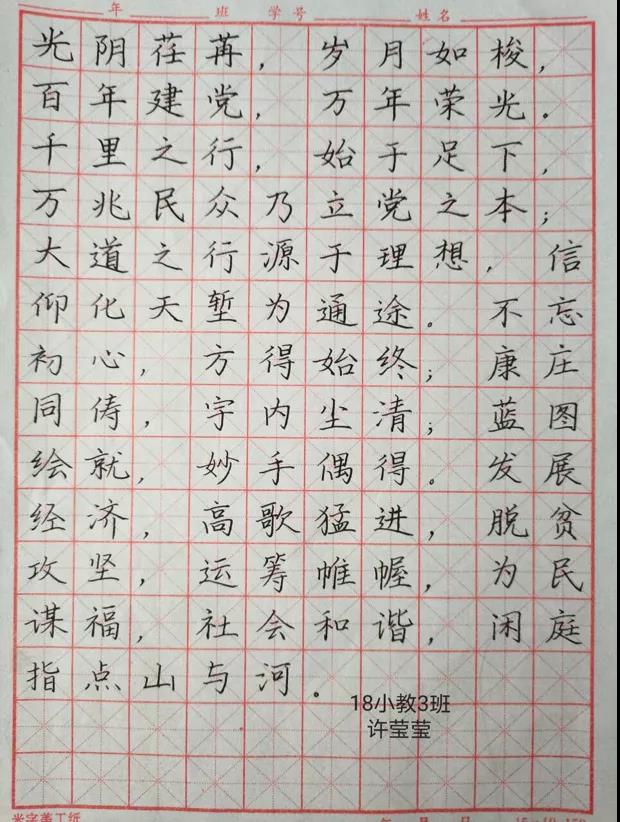 年 班 学号 姓名
光阴荏苒，岁月如梭，
百年建党，万年荣光。
千里之行，始于足下，
万兆民众乃立党之本；
大道之行源于理想，信
仰化天堑为通途。不忘
初心，方得始终；康庄
同俦，宇内尘清；蓝图
绘就，妙手偶得。发展
经济，高歌猛进，脱贫
攻坚，运筹帷幄，为民
谋福，社会和谐，闲庭
指点山与河。
18小教3班
许莹莹